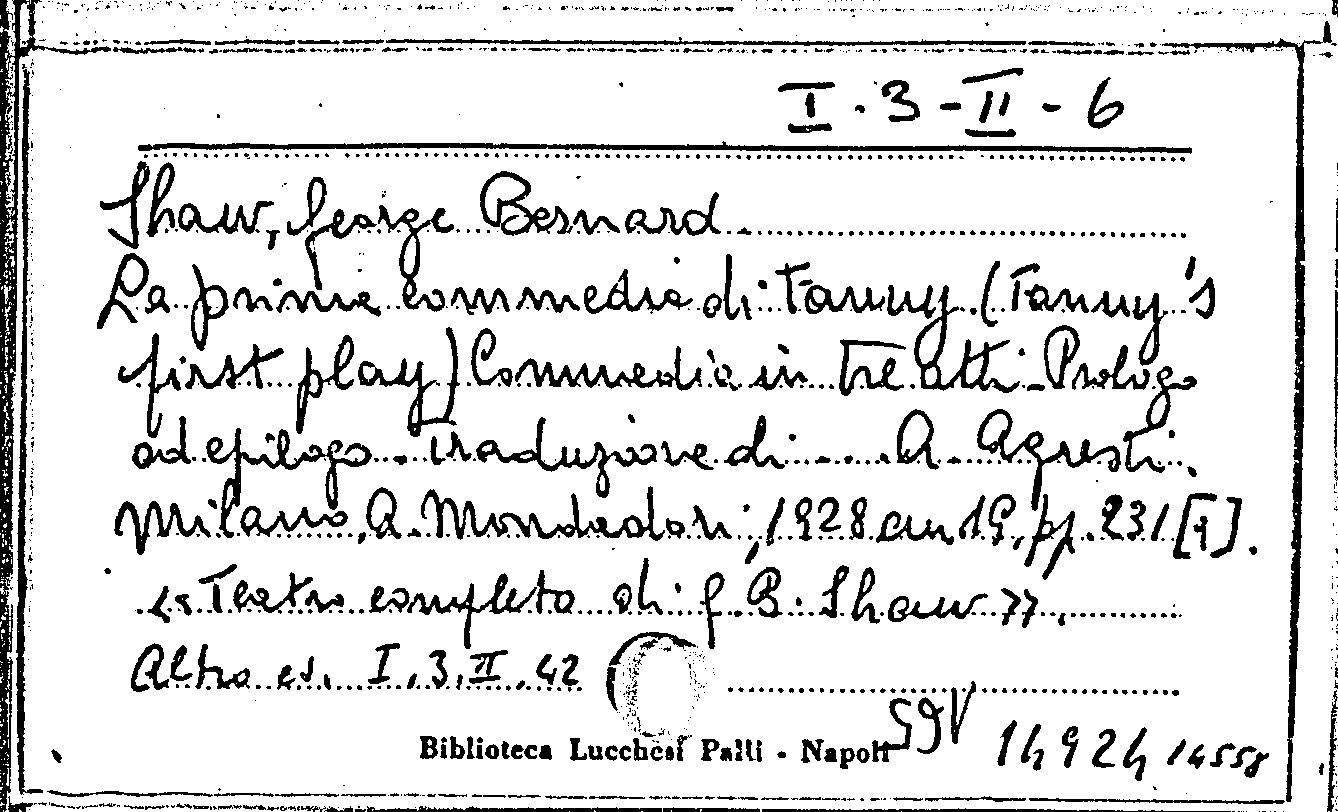 I.3-II-6
Shaw, George Bernard.
La prima commedia di Fanny (Fanny's
first play) Commedia in tre atti. Prologo
ed epilogo. Traduzione di .... A. Agresti.
Milano, A. Mondadori, 1928 cm 19, pp. 231 [1].
«Teatro completo di G. B. Shaw».
Altro es. I.3.II.42
Biblioteca Lucchesi Palli - Napoli
14924 14558